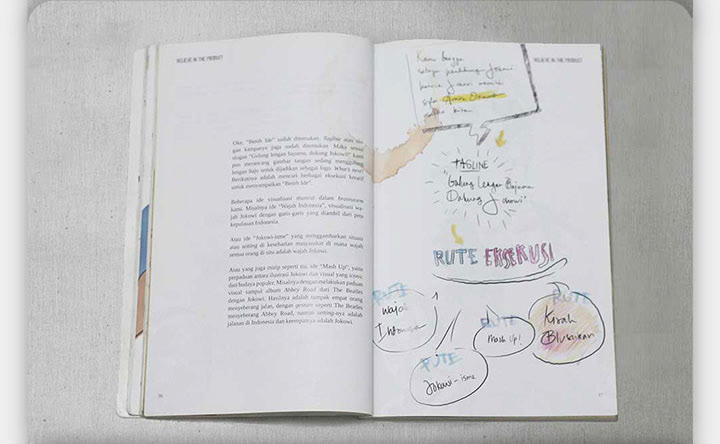 BELIEVE IN THE PRODUCT
Oke, "Benih Ide" sudah ditemukan. Tagline atau slo-
gan kampanye juga sudah ditemukan. Maka sesuai
slogan "Gulung lengan bajumu, dukung Jokowi!" kami
pun merancang gambar tangan sedang menggulung
lengan baju untuk dijadikan sebagai logo. What's next?
Berikutnya adalah mencari berbagai eksekusi kreatif
untuk menyampaikan "Benih Ide".
Beberapa ide visualisasi muncul dalam
kami. Misalnya ide "Wajah Indonesia", visualisasi wa-
jah Jokowi dengan garis-garis yang diambil dari peta
kepulauan Indonesia.
Atau ide "Jokowi-isme" yang menggambarkan situasi
atau setting di keseharian masyarakat di mana wajah
semua orang di situ adalah wajah Jokowi.
Atau yang juga mirip seperti itu, ide "Mash Up", yaitu
perpaduan antara ilustrasi Jokowi dan visual yang iconic
dari budaya populer. Misalnya dengan melakukan paduan
visual sampul album Abbey Road dari The Beatles
dengan Jokowi. Hasilnya adalah tampak empat orang
menyeberang jalan, dengan gesture seperti The Beatles
menyeberang Abbey Road, namun setting-nya adalah
jalanan di Indonesia dan keempatnya adalah Jokowi.
BELIEVE IN THE PRODUCT
Kami bangga
sebagai pendukung Jokowi
karena Jokowi
TAGLINE
Gulung Lengan Bajumu
Dukung Jokowi"
RUTE EKSEKUSI
RUTE
Wajah
RUTE
Jokowi-isme
RUTE
Mash Up!
RUTE
Kisah
Blusukan